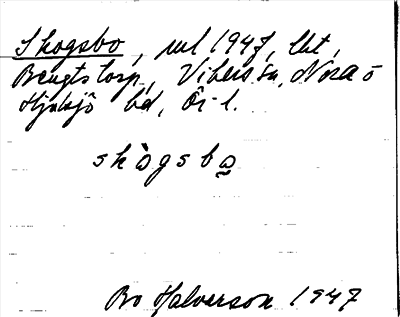 Skogsbo, url 1947, lht,
Bengtstorp, Vibers sn, Nora o
Hjulsjö bd, Ör l.
skògsbo̲
Bo Halverson 1947